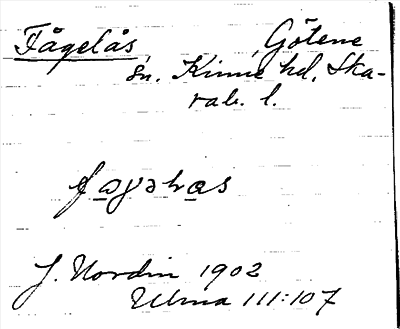 Fågelås, Götene
sn. Kinne hd, Ska-
rab. l.
J. Nordin 1902
Ulma 111:107